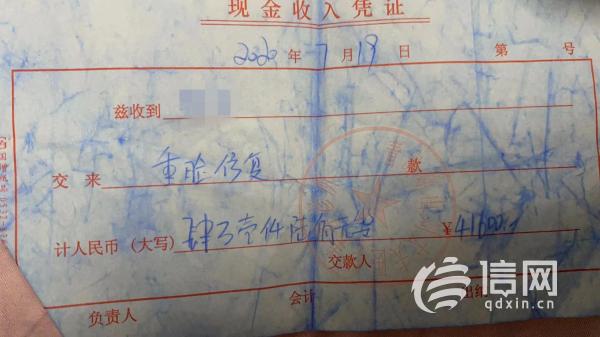 现金收入凭证
2020年7月19日 第 号
兹收到
交来 重脸修复 款
计人民币（大写）肆万壹仟陆佰元整 ¥41600.-
交款人
负责人 会计 出纳
信网
qdxin.cn